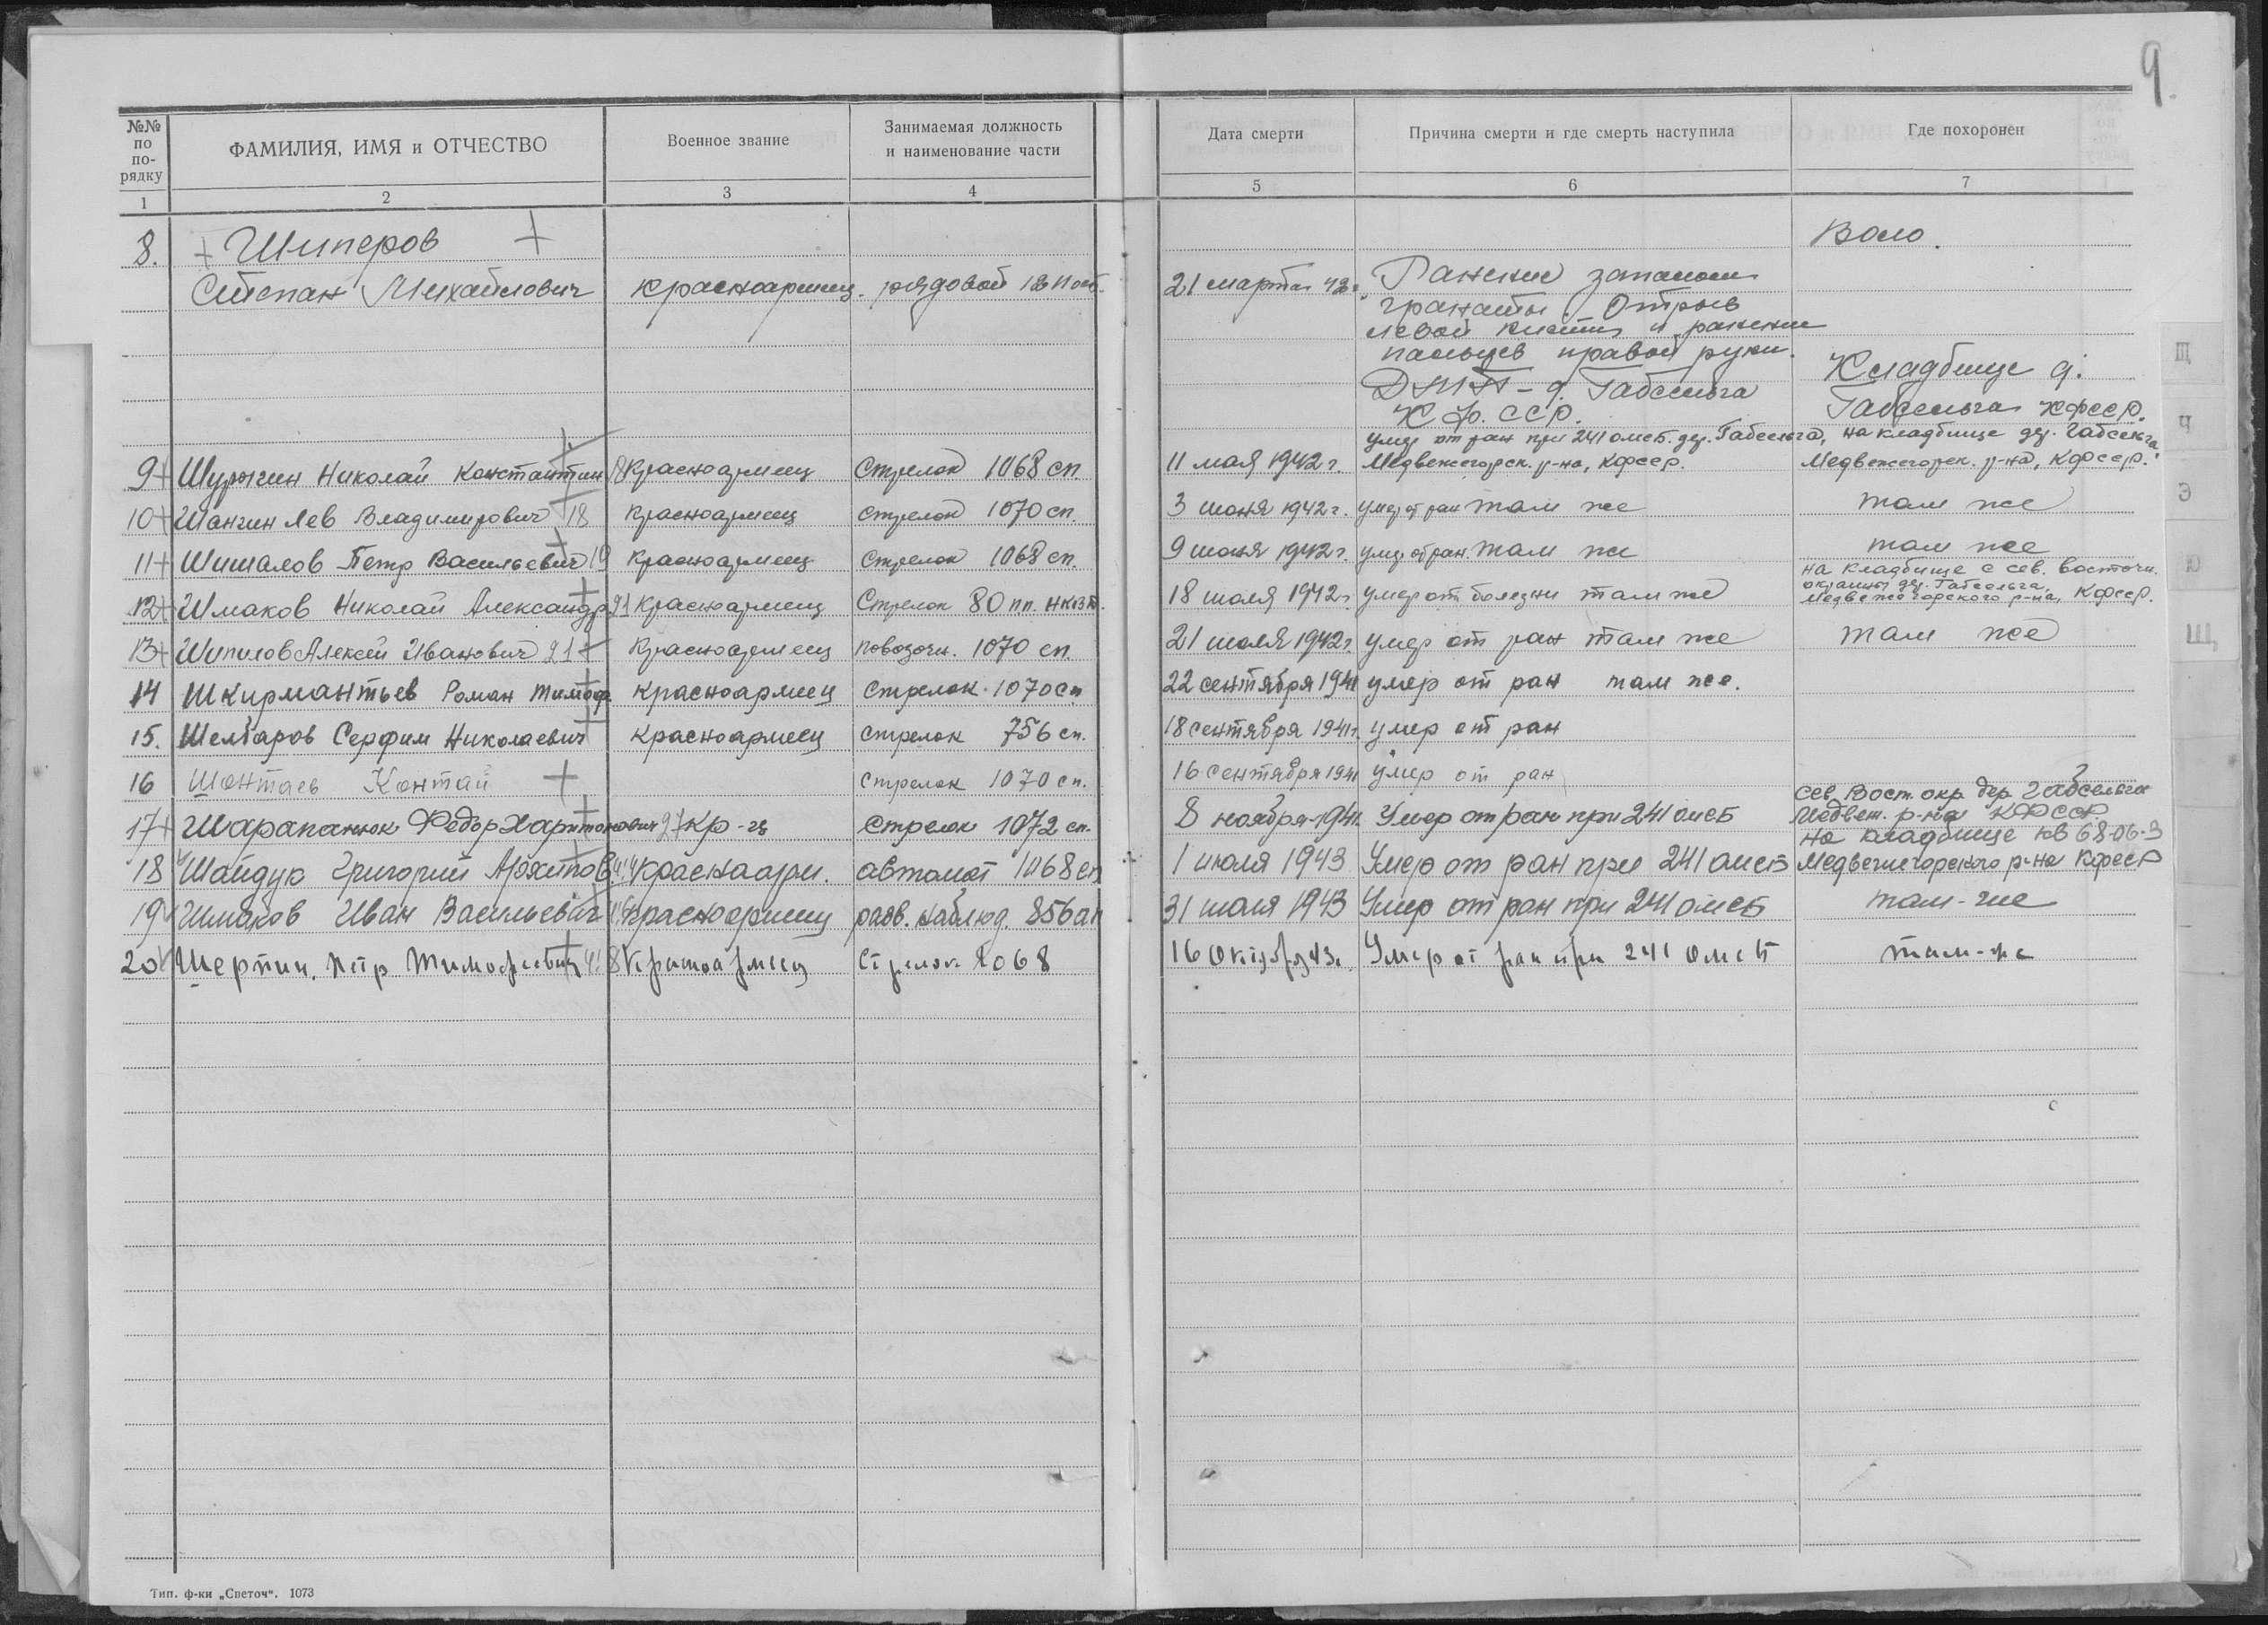 9
№№ по по-рядку
ФАМИЛИЯ, ИМЯ и ОТЧЕСТВО
Военное звание
Занимаемая должность и наименование части
Дата смерти
Причина смерти и где смерть наступила
Где похоронен
1 2 3 4 5 6 7
8. + Шиперов +
Степан Михайлович красноармеец. рядовой 21 марта 42г. Ранение запалом
гранаты. Отрыв
левой кисти и ранение
пальцев правой руки.
- д. Габсельга
К. Ф. ССР.
Кладбище д.
Габсельга КФССР.
умер от ран при 241 омсб. дер. Габсельга, на кладбище дер. Габсельга
9 + Шурыгин Николай Константин 18 красноармеец Стрелок 1068 сп. 11 мая 1942 г. Медвежегорск. р-на, КФССР. Медвежегорск. р-на, КФССР.
10 + Шангин Лев Владимирович 18 красноармеец стрелок 1070 сп. 3 июня 1942 г. умер от ран там же там же
11 + Шишалов Петр Васильевич 19 красноармеец стрелок 1068 сп. 9 июня 1942 г. умер от ран. там же там же
на кладбище с сев. восточн.
окраины дер. Габсельга,
12 + Шмаков Николай Александр 21 красноармеец Стрелок 80 пп. НКВД. 18 июля 1942 г. умер от болезни там же Медвежегорского р-на, КФССР.
13 + Шипилов Алексей Иванович 21 + красноармеец повозочн. 1070 сп. 21 июля 1942 г. умер от ран там же там же
14 Шкирмантьев Роман Тимоф. красноармеец Стрелок. 1070 сп 22 сентября 1941 умер от ран там же.
15. Шелгаров Серфим Николаевич красноармеец стрелок 756 сп. 18 сентября 1941 г. умер от ран
16 Шонтаев Контай + стрелок 1070 сп. 16 сентября 1941 умер от ран
сев. Вост. окр. дер. Габсельга
17 + Шарапанюк Федор Харитонович 27 кр-ц стрелок 1072 сп. 8 ноября 1941. Умер от ран при 241 омсб Медвеж. р-на КФССР
на кладбище кв 68-06-3
18 Шайдук Григорий Архипов красноарм. автомат 1068 сп 1 июля 1943 Умер от ран при 241 омсб Медвежегорского р-на КФССР
19 Шмаков Иван Васильевич красноармеец разв. наблюд. 856 ап 31 июля 1943 Умер от ран при 241 омсб там-же
20 Шерпин. Петр Тимофеевич красноармеец Стрелок 1068 16 октября 43г. Умер от ран при 241 омсб там-же
Щ
Ч
Э
Ю
Щ
Тип. ф-ки „Светоч“. 1073